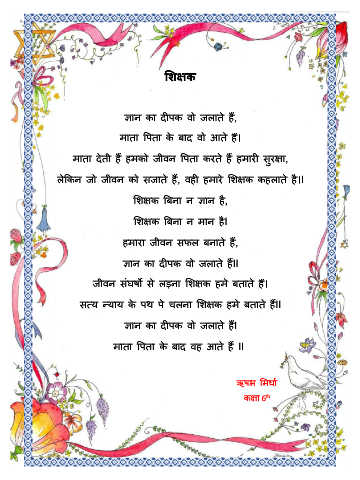 शिक्षक
ज्ञान का दीपक वो जलाते हैं,
माता पिता के बाद वो आते हैं।
माता देती हैं हमको जीवन पिता करते हैं हमारी सुरक्षा,
लेकिन जो जीवन को सजाते हैं, वही हमारे शिक्षक कहलाते है।।
शिक्षक बिना न ज्ञान है,
शिक्षक बिना न मान है।
हमारा जीवन सफल बनाते हैं,
ज्ञान का दीपक वो जलाते हैं॥
जीवन संघर्षो से लड़ना शिक्षक हमे बताते हैं।
सत्य न्याय के पथ पे चलना शिक्षक हमे बताते हैं॥
ज्ञान का दीपक वो जलाते हैं।
माता पिता के बाद वह आते हैं ॥
ऋषभ मिर्धा
कक्षा 6th